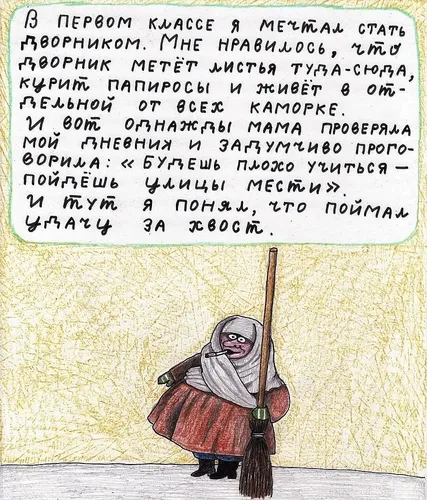 В первом классе я мечтал стать
дворником. Мне нравилось, что
дворник метёт листья туда-сюда,
курит папиросы и живёт в от-
дельной от всех каморке.
И вот однажды мама проверяла
мой дневник и задумчиво прого-
ворила: «Будешь плохо учиться –
пойдёшь улицы мести».
И тут я понял, что поймал
удачу за хвост.